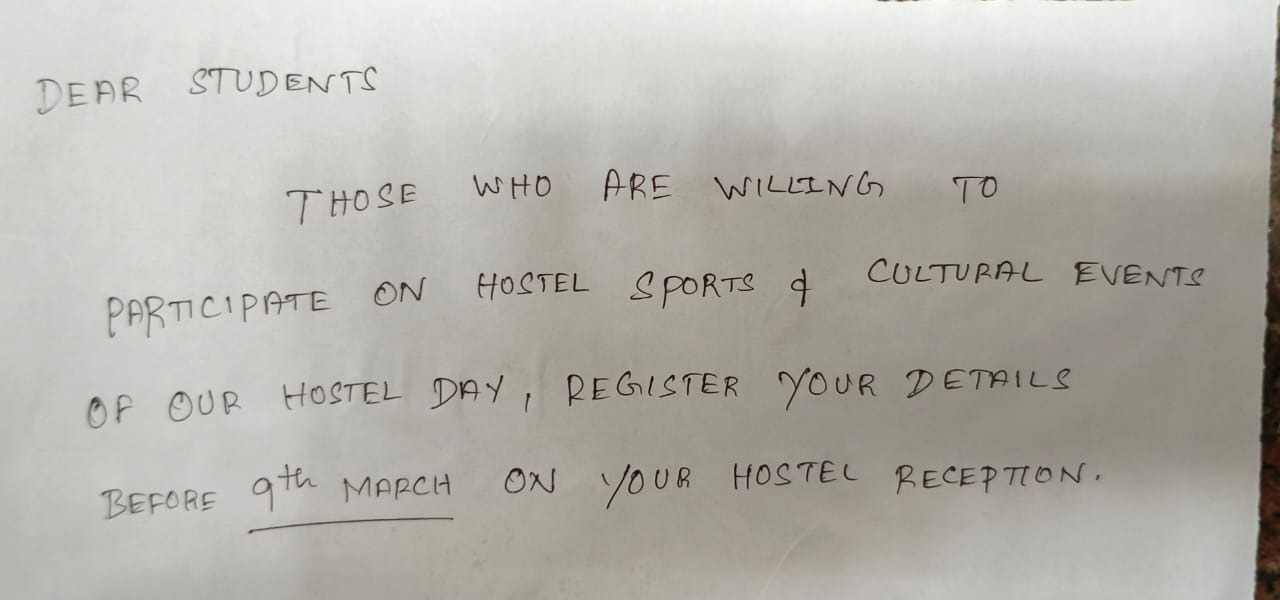 DEAR STUDENTS
THOSE WHO ARE WILLING TO
PARTICIPATE ON HOSTEL SPORTS & CULTURAL EVENTS
OF OUR HOSTEL DAY, REGISTER YOUR DETAILS
BEFORE 9th MARCH ON YOUR HOSTEL RECEPTION.